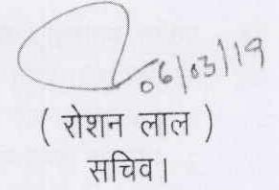 06/03/19
( रोशन लाल )
सचिव।